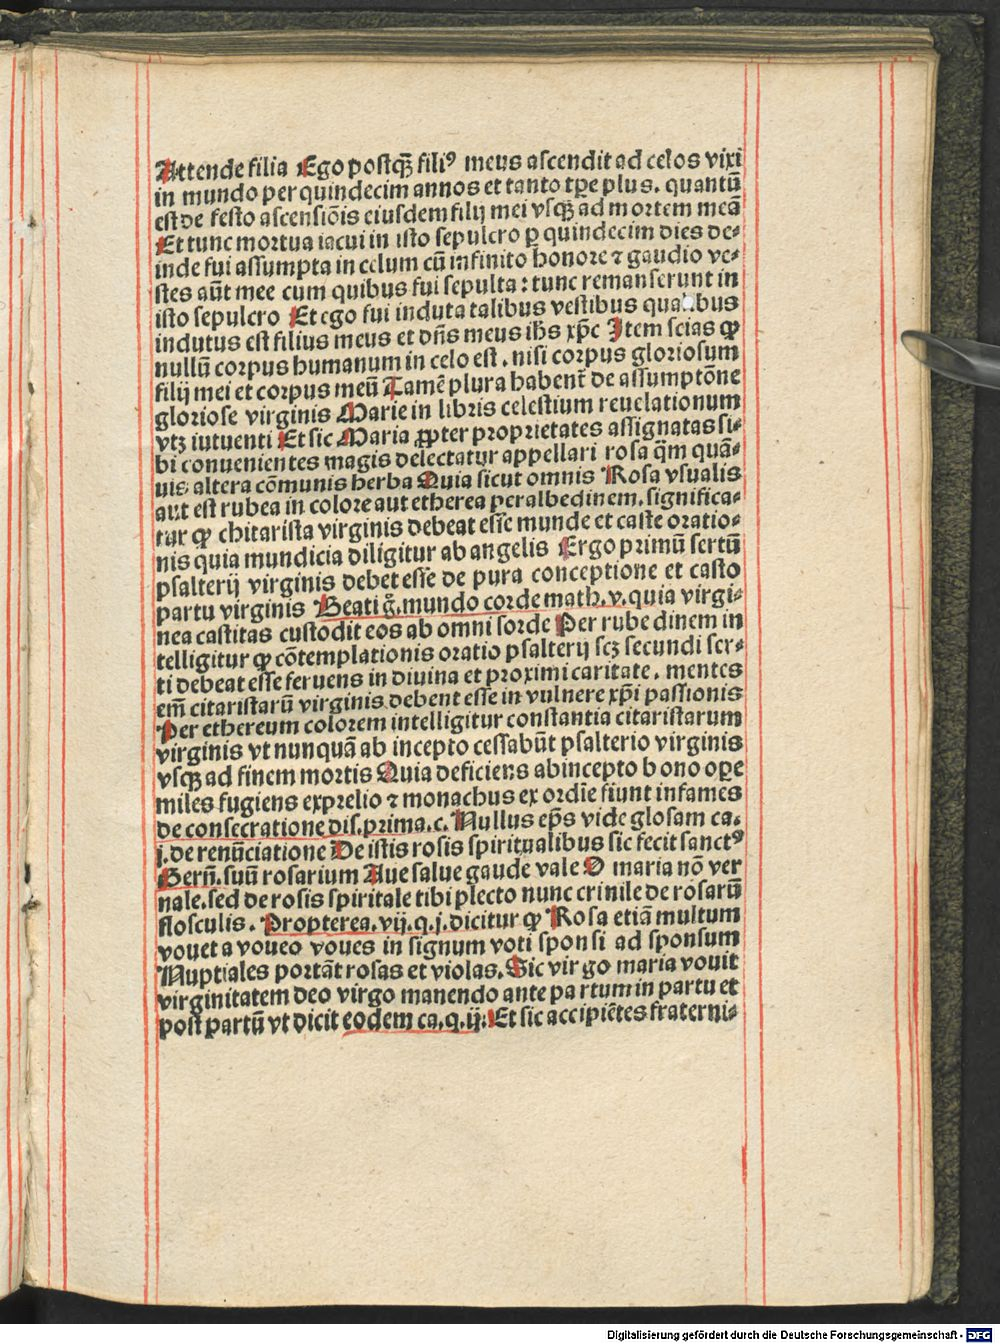 Attende filia Ego postqȝ̄ filiꝰ meus ascendit ad celos vixi
in mundo per quindecim annos et tanto tp̄e plus. quantū
est de festo ascensiōis eiusdem filij mei vsqȝ ad mortem meā
Et tunc mortua iacui in isto sepulcro ꝑ quindecim dies de⸗
inde fui assumpta in celum cū infinito honore ⁊ gaudio ve⸗
stes aūt mee cum quibus fui sepulta: tunc remanserunt in
isto sepulcro Et ego fui induta talibus vestibus qualibus
indutus est filius meus et dn̄s meus ihs̄ xp̄c Item scias ꝙ
nullū corpus humanum in celo est. nisi corpus gloriosum
filij mei et corpus meū Tamē plura habent᷑ de assumptōne
gloriose virginis Marie in libris celestium reuelationum
vtȝ iutuenti Et sic Maria ꝓpter proprietates assignatas si⸗
bi conuenientes magis delectatur appellari rosa q̄m quā⸗
uis altera cōmunis herba Quia sicut omnis Rosa vsualis
aut est rubea in colore aut etherea per albedinem. significa⸗
tur ꝙ chitarista virginis debeat esse munde et caste oratio⸗
nis quia mundicia diligitur ab angelis Ergo primū sertū
psalterij virginis debet esse de pura conceptione et casto
partu virginis Beati g̃. mundo corde math. v. quia virgi⸗
nea castitas custodit eos ab omni sorde Per rube dinem in
telligitur ꝙ cōtemplationis oratio psalterij scȝ secundi ser⸗
ti debeat esse feruens in diuina et proximi caritate. mentes
em̄ citaristarū virginis debent esse in vulnere xp̄i passionis
Per ethereum colorem intelligitur constantia citaristarum
virginis vt nunquā ab incepto cessabūt psalterio virginis
vsqȝ ad finem mortis Quia deficiens ab incepto bono oꝑe
miles fugiens ex prelio ⁊ monachus ex ordīe fiunt infames
de consecratione dis. prima. c. Nullus ep̄s vide glosam ca.
j. de renūciatione De istis rosis spiritualibus sic fecit sanctꝰ
Bern̄. suū rosarium Aue salue gaude vale O maria nō ver
nale. sed de rosis spiritale tibi plecto nunc crinile de rosarū
flosculis. Propterea. vij. q. j. dicitur ꝙ Rosa etiā multum
vouet a voueo voues in signum voti sponsi ad sponsum
Nuptiales portāt rosas et violas. Sic virgo maria vouit
virginitatem deo virgo manendo ante partum in partu et
post partū vt dicit eodem ca. q. ij. Et sic accipiētes fraterni⸗
Digitalisierung gefördert durch die Deutsche Forschungsgemeinschaft - DFG